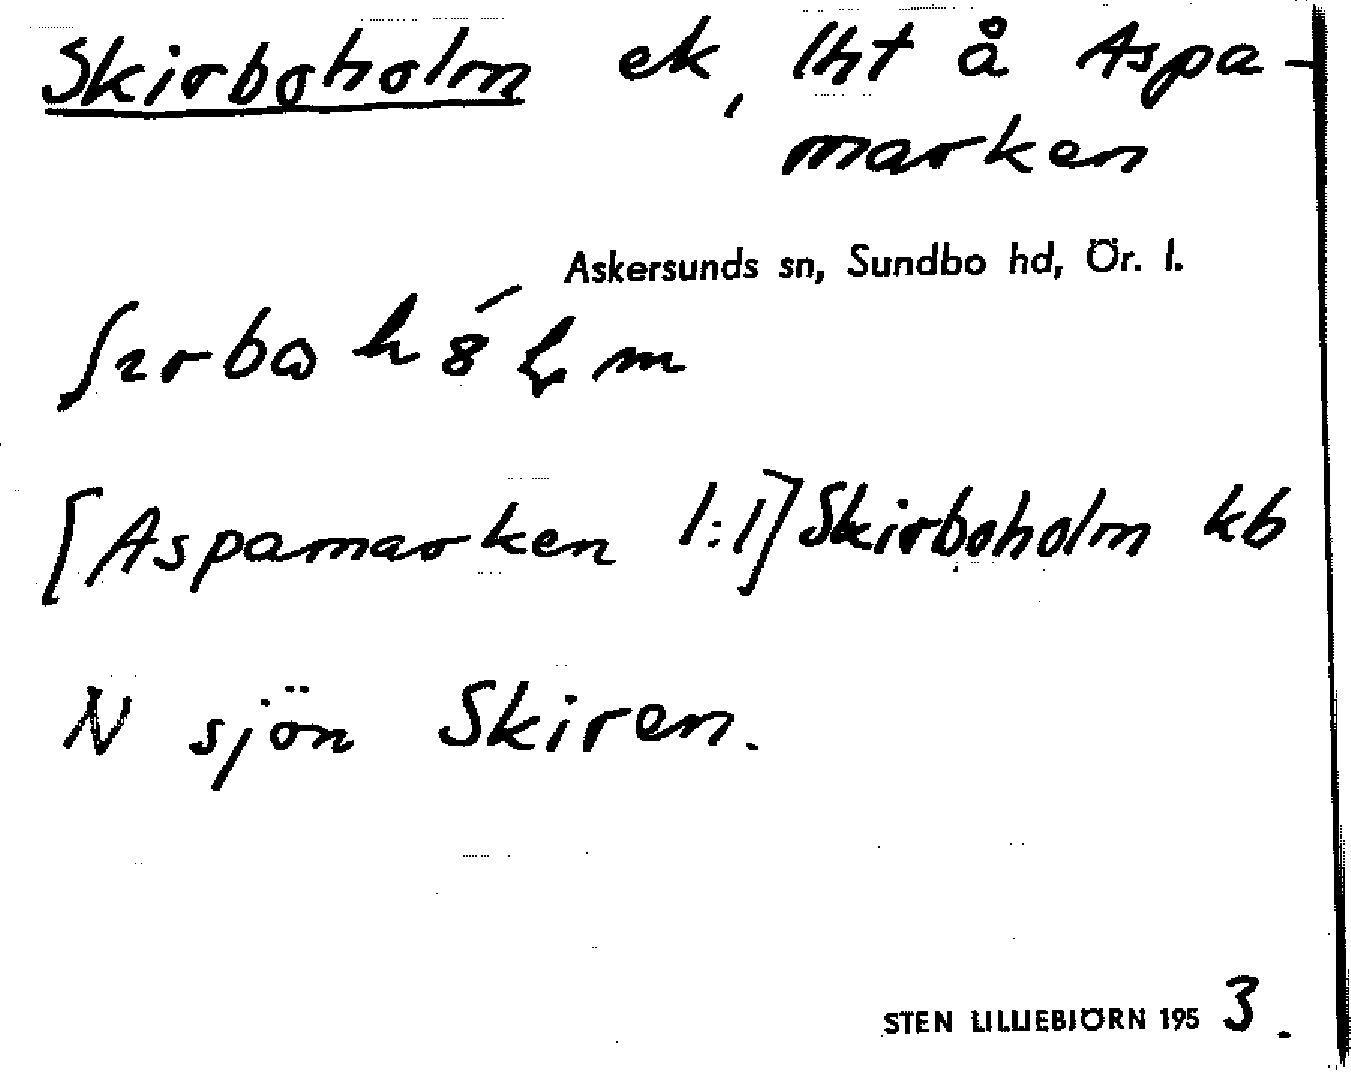 Skirboholm ek, lht å Aspa-
marken
Askersunds sn, Sundbo hd, Ör. l.
[Aspamarken 1:1] Skirboholm kb
N sjön Skiren.
STEN LILLIEBJÖRN 1953.